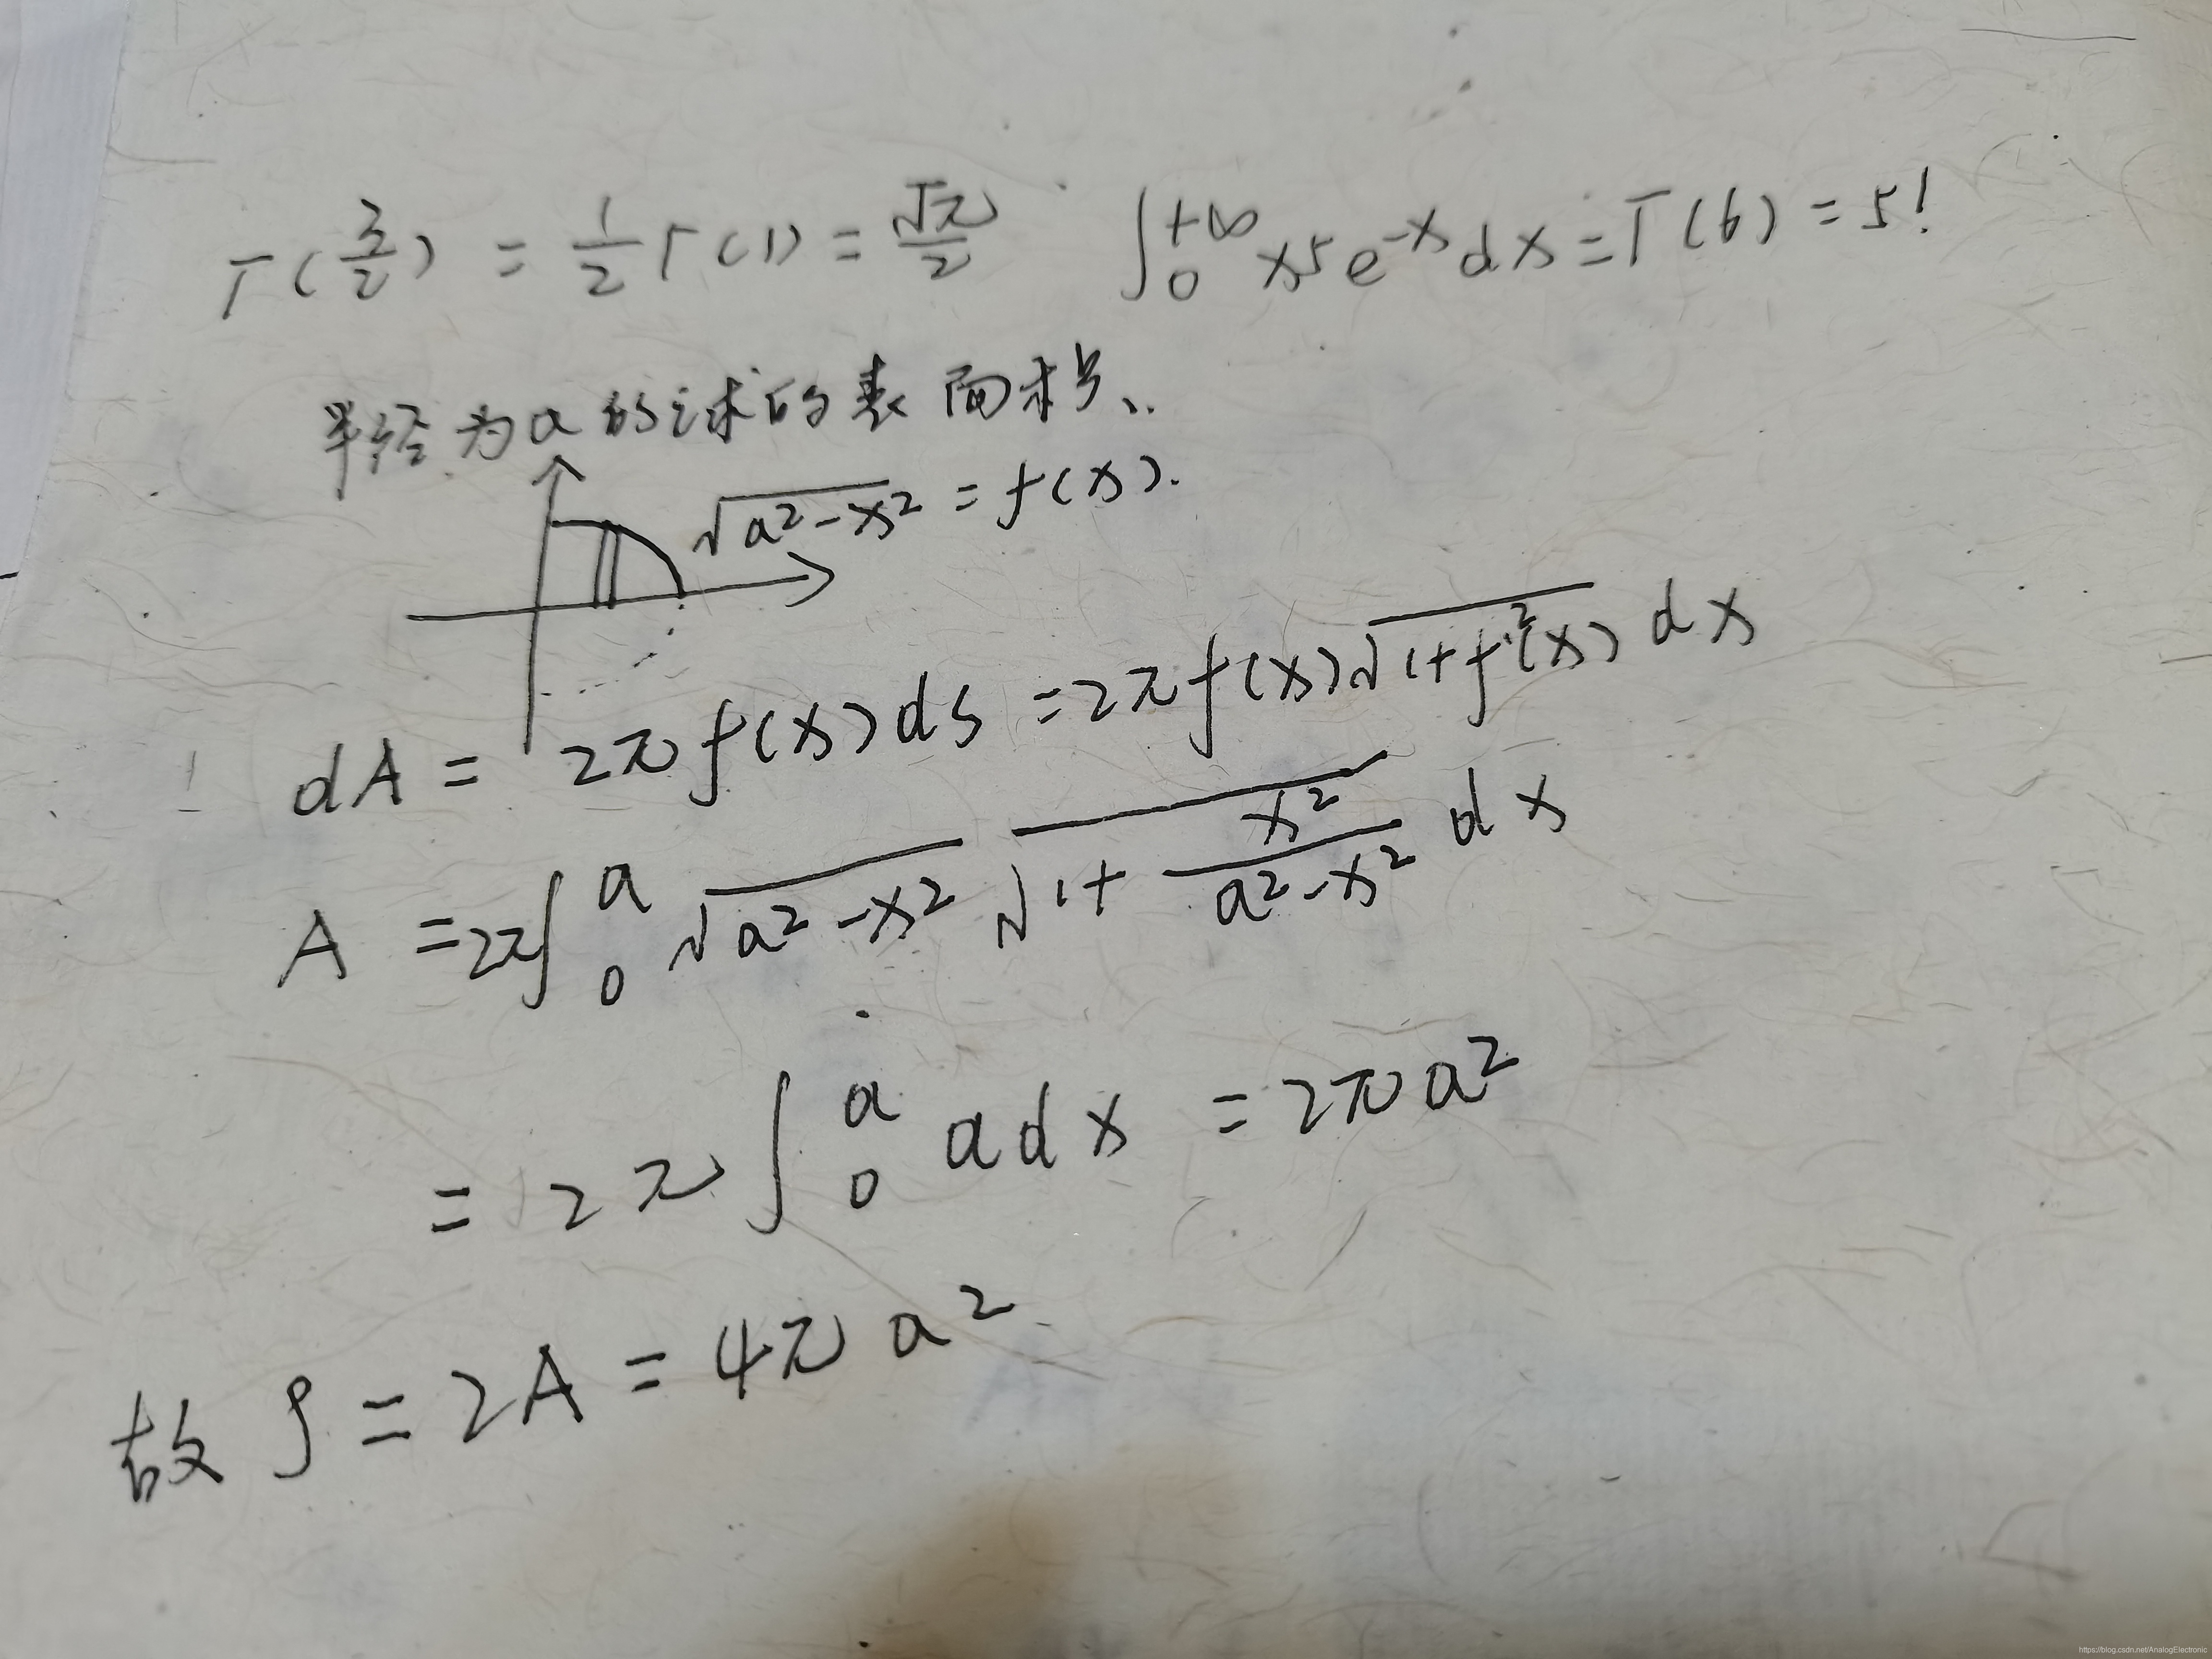 Γ(3/2) = 1/2 Γ(1) = √π/2   ∫₀^{+∞} x⁵e^{-x}dx = Γ(6) = 5!
半径为a的球的表面积、
√(a²-x²) = f(x).
dA = 2πf(x)ds = 2πf(x)√(1+f'²(x)) dx
A = 2π∫₀^a √(a²-x²) √(1+ x²/(a²-x²)) dx
= 2π ∫₀^a adx = 2πa²
故 S = 2A = 4πa²
https://blog.csdn.net/AnalogElectronic